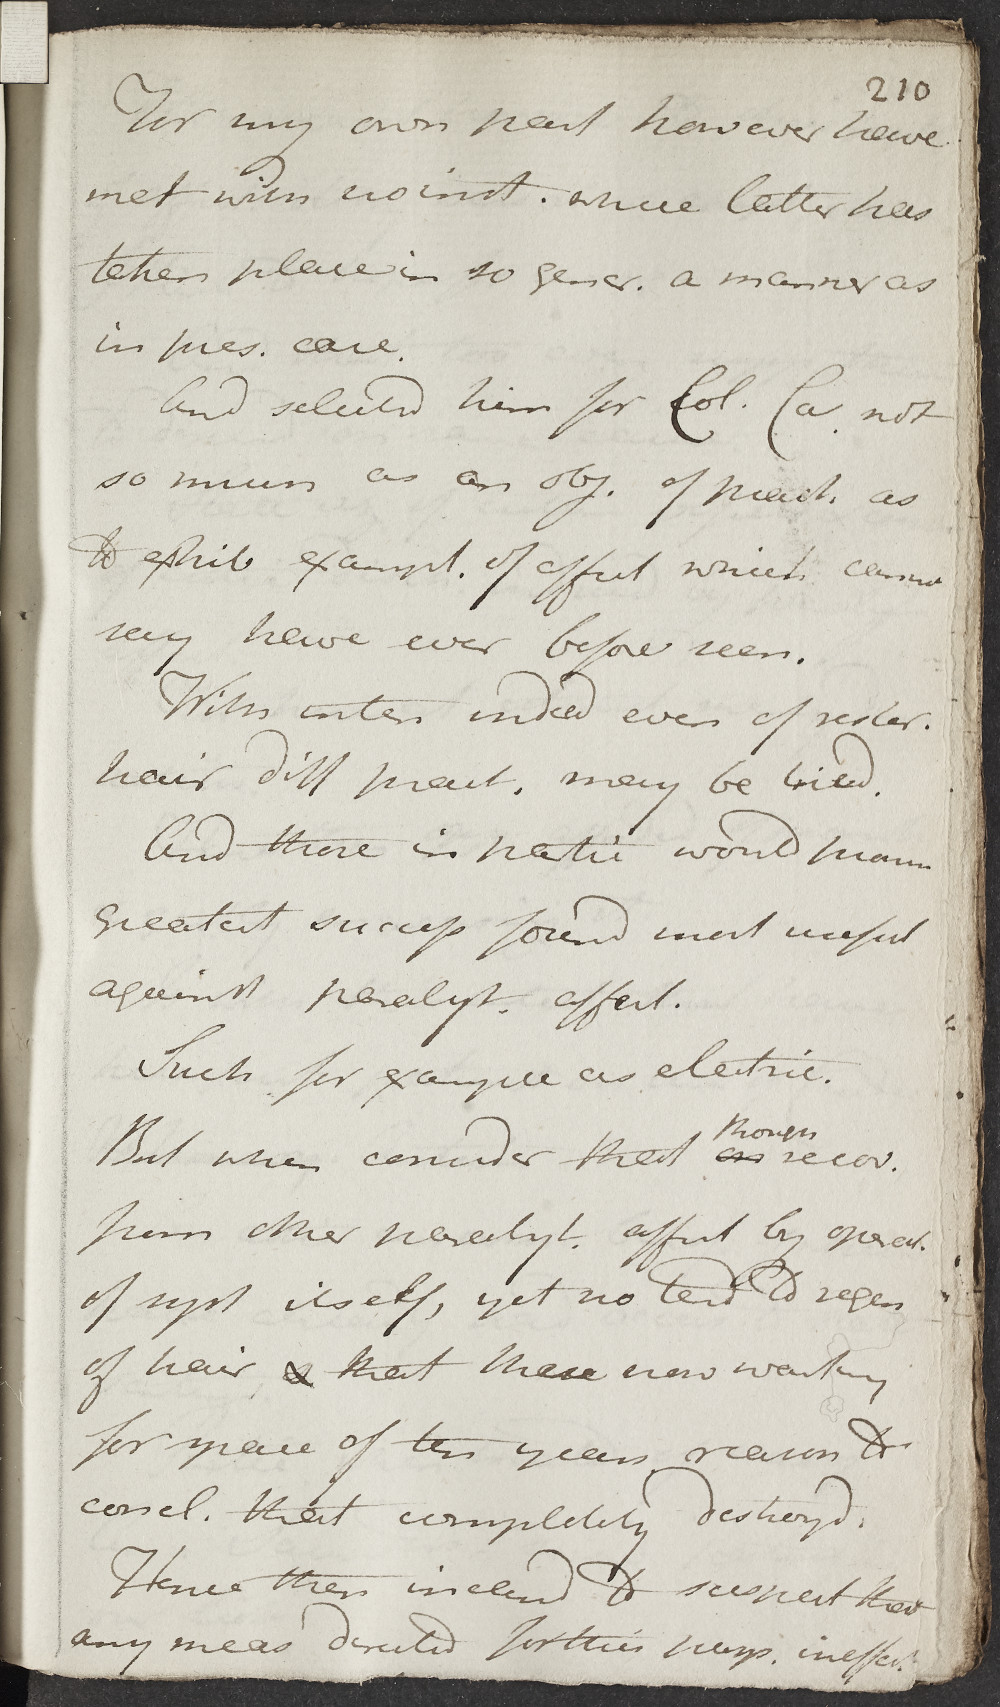 210
For my own part however have
met with no inst. where latter has
taken place in so gener. a manner as
in pres. case.
And selected him for Col. Ca. not
so much as an obj. of pract. as
to exhib exampl. of effect which cannot
say have ever before seen.
With inten indeed even of restor.
hair diff pract. may be tried.
And those in partic would prom
greatest success found most useful
against paralyt. affect.
Such for example as electric.
But when consider that though recov.
from other paralyt. affect by operat.
of syst itself, yet no tend to regen
of hair & that these now wanting
for space of ten years reason to
concl. that completely destroyd.
Hence then inclind to suspect that
any meas directed for this purp. ineffect.